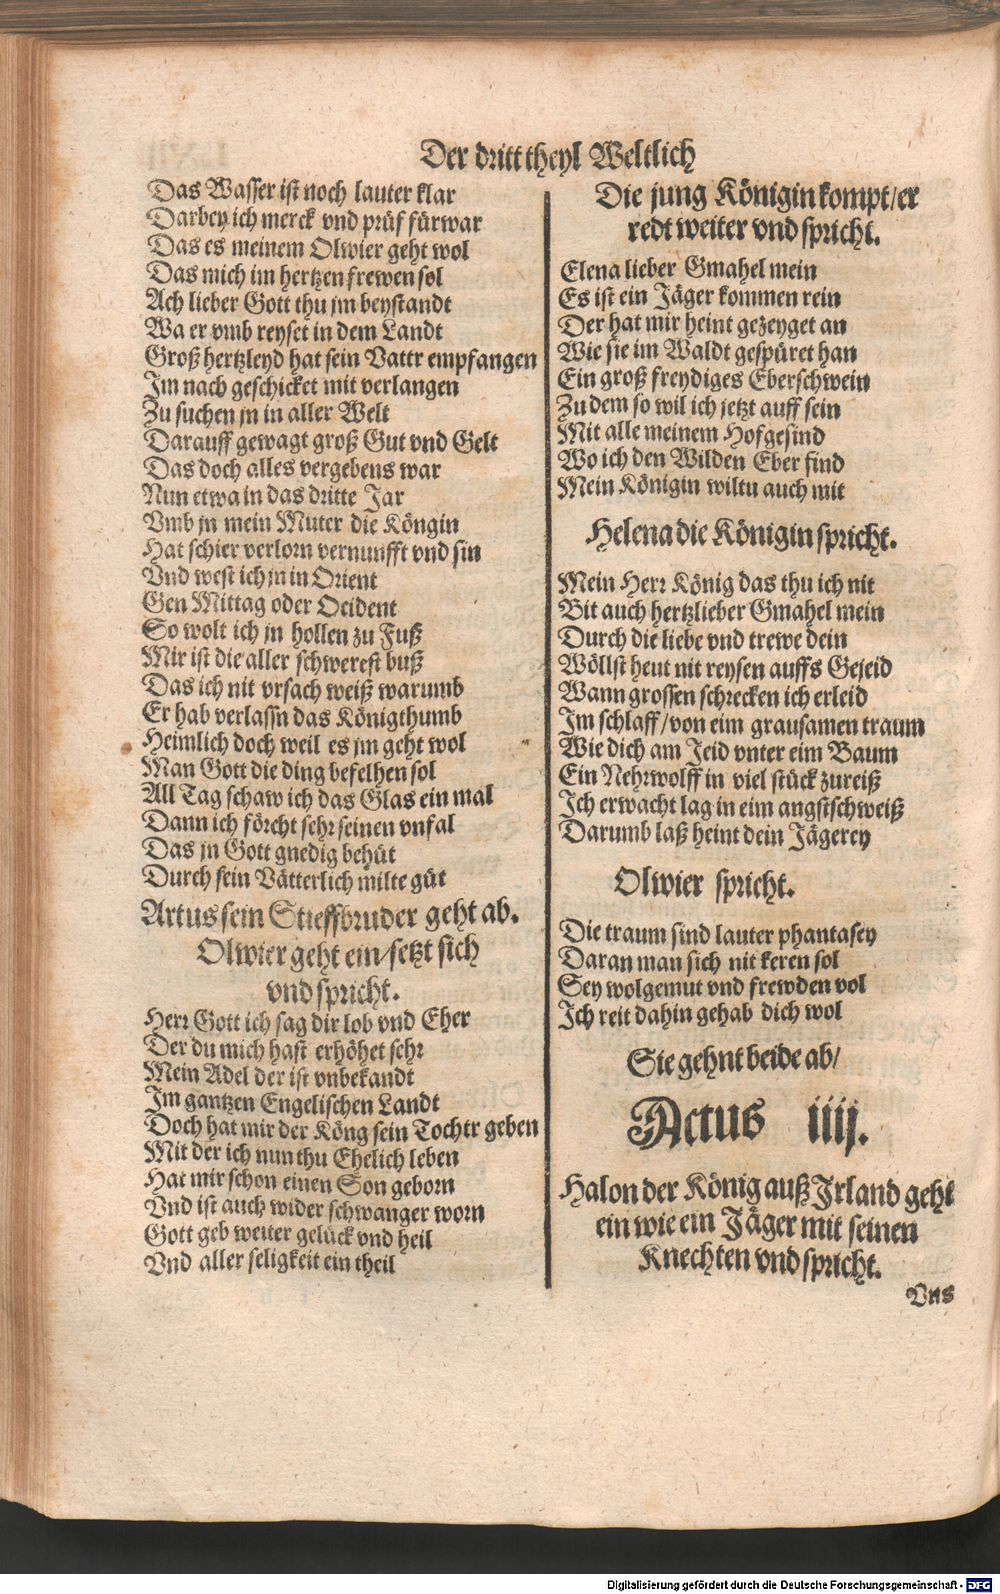 Der dritt theyl Weltlich
Das Wasser ist noch lauter klar
Darbey ich merck vnd prüf fürwar
Das es meinem Olwier geht wol
Das mich im hertzen frewen sol
Ach lieber Gott thu jm beystandt
Wa er vmb reyset in dem Landt
Groß hertzleyd hat sein Vattr empfangen
Im nach geschicket mit verlangen
Zu suchen jn in aller Welt
Darauff gewagt groß Gut vnd Gelt
Das doch alles vergebens war
Nun etwa in das dritte Jar
Vmb jn mein Muter die Köngin
Hat schier verlorn vernunfft vnd sin
Vnd west ich jn in Orient
Gen Mittag oder Ocident
So wolt ich jn hollen zu Fuß
Mir ist die aller schwerest buß
Das ich nit vrsach weiß warumb
Er hab verlassn das Königthumb
Heimlich doch weil es jm geht wol
Man Gott die ding befelhen sol
All Tag schaw ich das Glas ein mal
Dann ich förcht sehr seinen vnfal
Das jn Gott gnedig behüt
Durch sein Vätterlich milte güt
Artus sein Stieffbruder geht ab.
Olwier geht ein/setzt sich
vnd spricht.
Herr Gott ich sag dir lob vnd Eher
Der du mich hast erhöhet sehr
Mein Adel der ist vnbekandt
Im gantzen Engelischen Landt
Doch hat mir der Köng sein Tochtr geben
Mit der ich nun thu Ehelich leben
Hat mir schon einen Son geborn
Vnd ist auch wider schwanger worn
Gott geb weiter gelück vnd heil
Vnd aller seligkeit ein theil
Die jung Königin kompt/er
redt weiter vnd spricht.
Elena lieber Gmahel mein
Es ist ein Jäger kommen rein
Der hat mir heint gezeyget an
Wie sie im Waldt gespüret han
Ein groß freydiges Eberschwein
Zu dem so wil ich jetzt auff sein
Mit alle meinem Hofgesind
Wo ich den Wilden Eber find
Mein Königin wiltu auch mit
Helena die Königin spricht.
Mein Herr König das thu ich nit
Bit auch hertzlieber Gmahel mein
Durch die liebe vnd trewe dein
Wöllst heut nit reysen auffs Gejeid
Wann grossen schrecken ich erleid
Im schlaff/von eim grausamen traum
Wie dich am Jeid vnter eim Baum
Ein Nehrwolff in viel stück zureiß
Ich erwacht lag in eim angstschweiß
Darumb laß heint dein Jägerey
Olwier spricht.
Die traum sind lauter phantasey
Daran man sich nit keren sol
Sey wolgemut vnd frewden vol
Ich reit dahin gehab dich wol
Sie gehnt beide ab/
Actus iiij.
Halon der König auß Irland geht
ein wie ein Jäger mit seinen
Knechten vnd spricht.
Vns
Digitalisierung gefördert durch die Deutsche Forschungsgemeinschaft - DFG